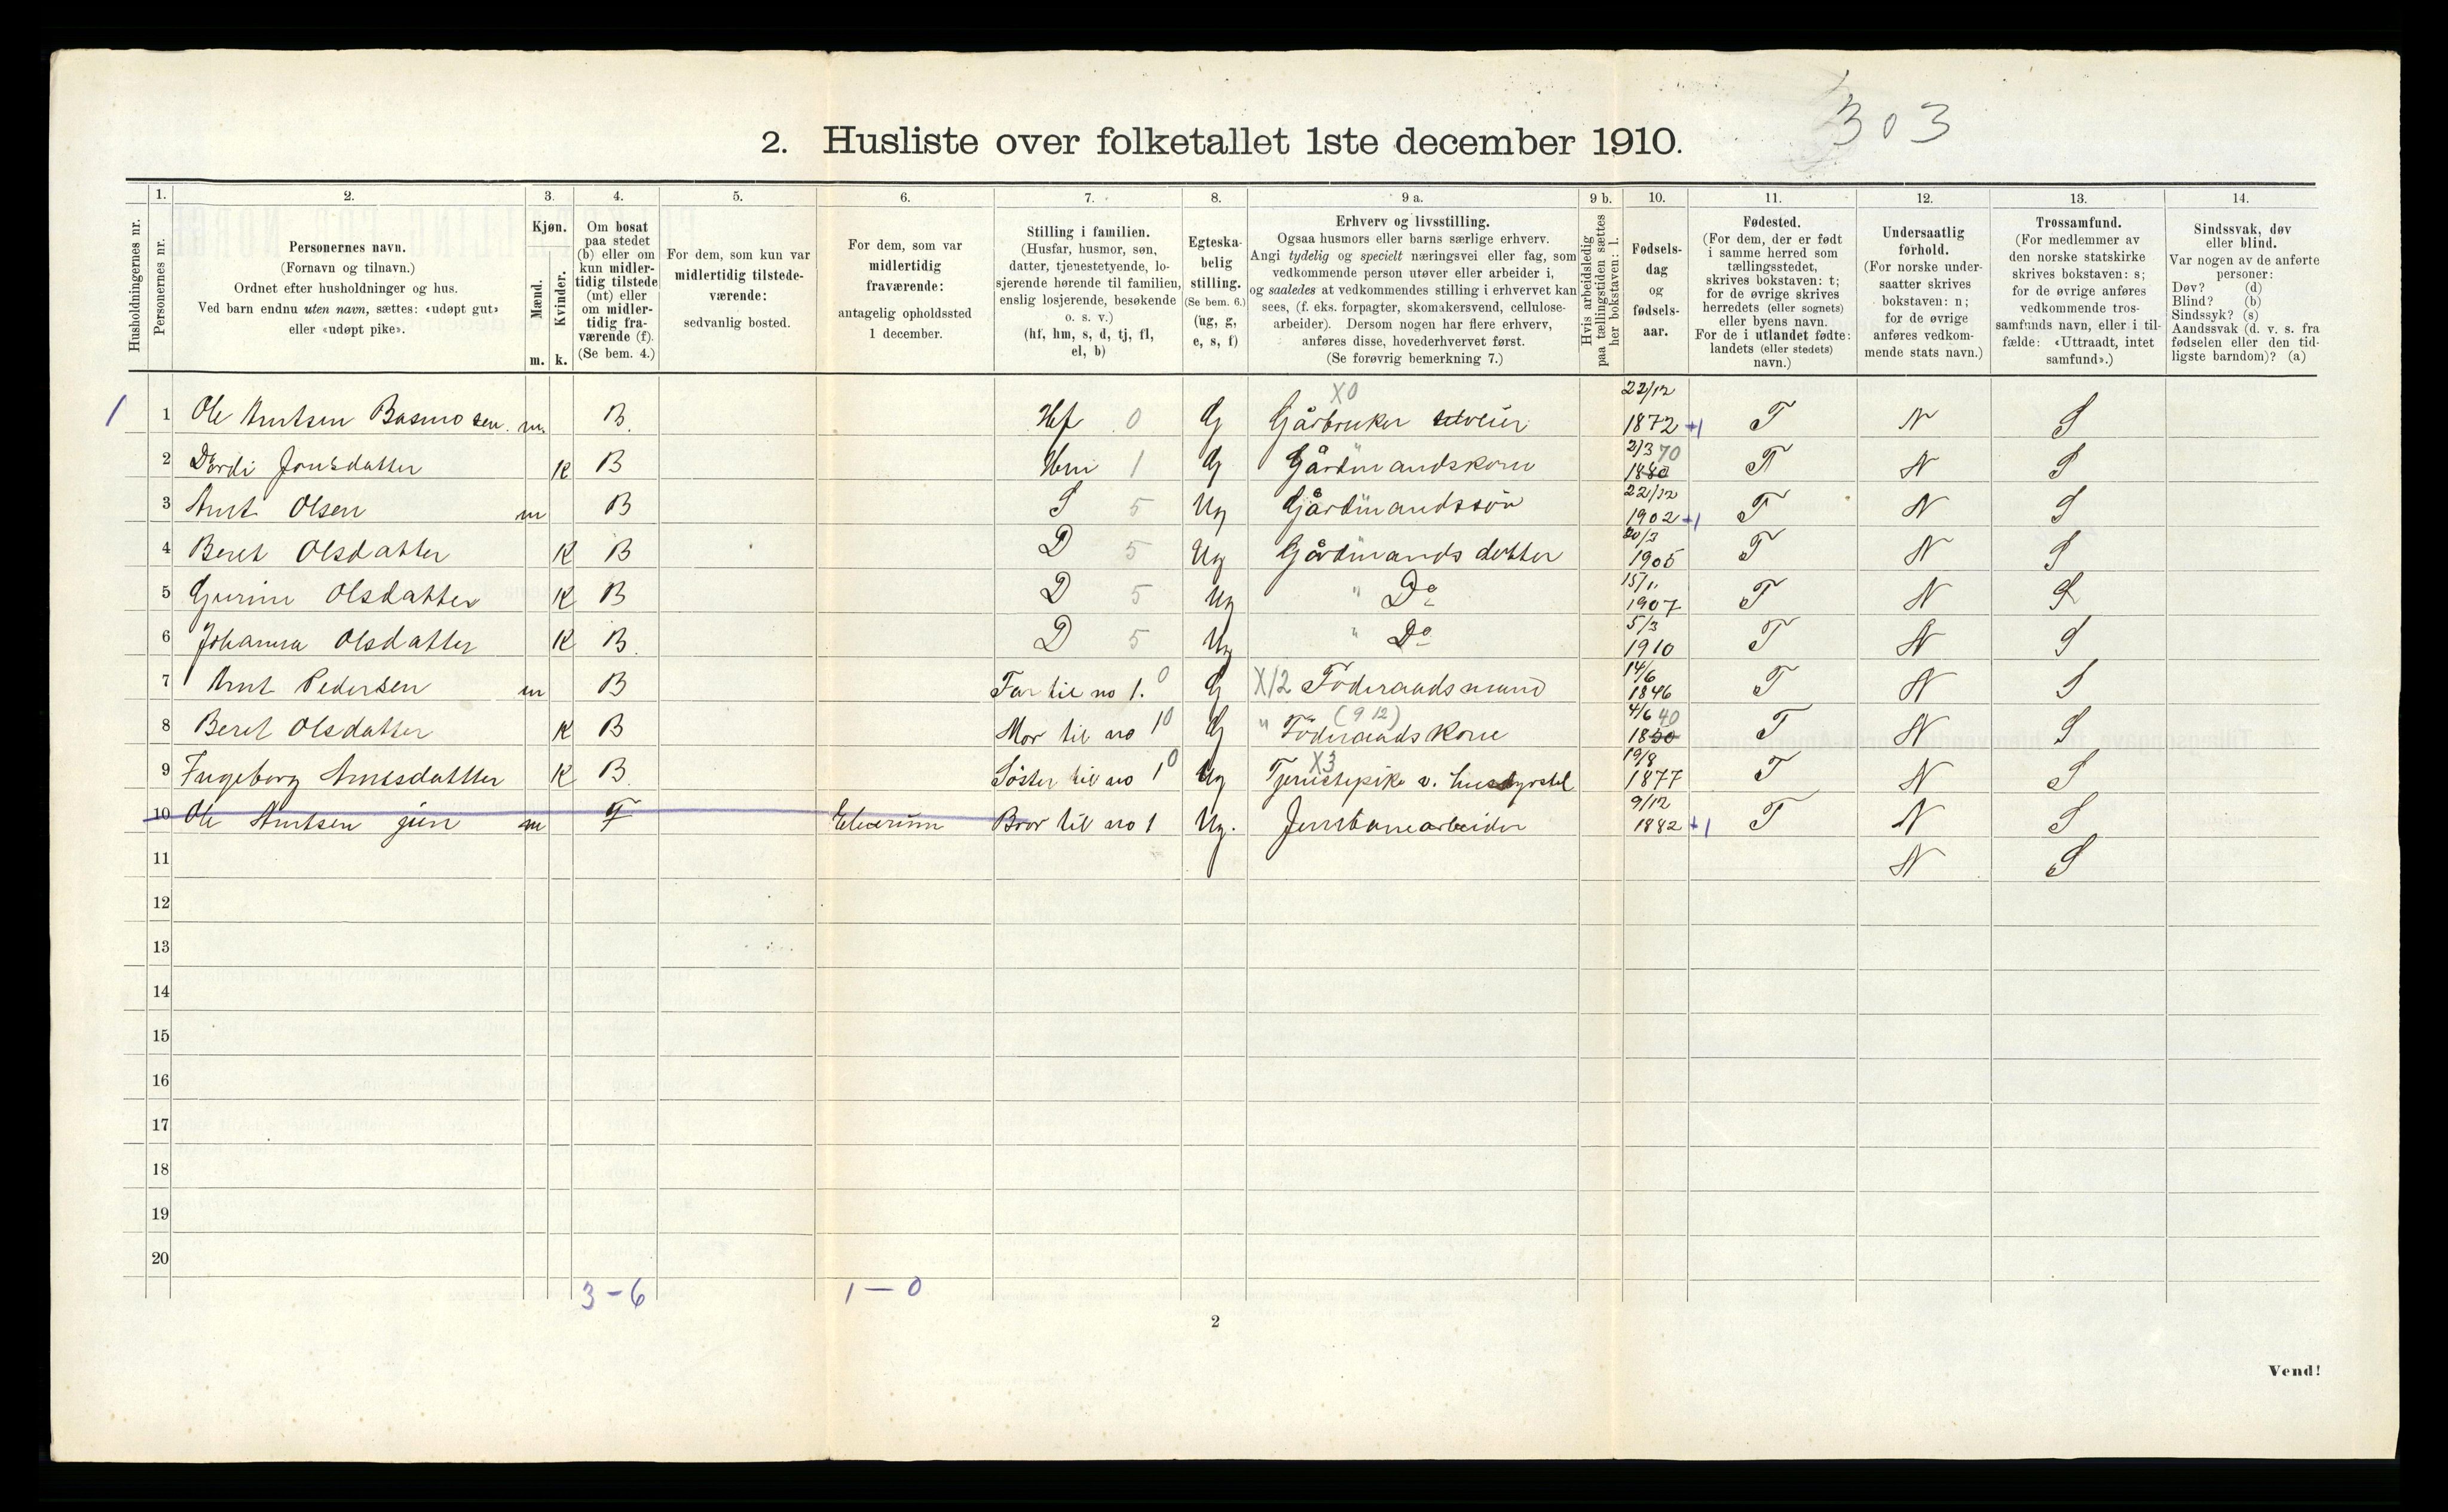 303
2. Husliste over folketallet 1ste december 1910.
Husholdningernes nr.
1.
Personernes nr.
2.
Personernes navn.
(Fornavn og tilnavn.)
Ordnet efter husholdninger og hus.
Ved barn endnu uten navn, sættes: «udøpt gut»
eller «udøpt pike».
3.
Kjøn.
Mænd.
Kvinder.
m. k.
4.
Om bosat
paa stedet
(b) eller om
kun midler-
tidig tilstede
(mt) eller
om midler-
tidig fra-
værende (f).
(Se bem. 4.)
5.
For dem, som kun var
midlertidig tilstede-
værende:
sedvanlig bosted.
6.
For dem, som var
midlertidig
fraværende:
antagelig opholdssted
1 december.
7.
Stilling i familien.
(Husfar, husmor, søn,
datter, tjenestetyende, lo-
sjerende hørende til familien,
enslig losjerende, besøkende
o. s. v.)
(hf, hm, s, d, tj, fl,
el, b)
8.
Egteska-
belig
stilling.
(Se bem. 6.)
(ug, g,
e, s, f)
9 a.
Erhverv og livsstilling.
Ogsaa husmors eller barns særlige erhverv.
Angi tydelig og specielt næringsvei eller fag, som
vedkommende person utøver eller arbeider i,
og saaledes at vedkommendes stilling i erhvervet kan
sees, (f. eks. forpagter, skomakersvend, cellulose-
arbeider). Dersom nogen har flere erhverv,
anføres disse, hovederhvervet først.
(Se forøvrig bemerkning 7.)
9 b.
Hvis arbeidsledig
paa tællingstiden sættes
her bokstaven: l.
10.
Fødsels-
dag
og
fødsels-
aar.
11.
Fødested.
(For dem, der er født
i samme herred som
tællingsstedet,
skrives bokstaven: t;
for de øvrige skrives
herredets (eller sognets)
eller byens navn.
For de i utlandet fødte:
landets (eller stedets)
navn.)
12.
Undersaatlig
forhold.
(For norske under-
saatter skrives
bokstaven: n;
for de øvrige
anføres vedkom-
mende stats navn.)
13.
Trossamfund.
(For medlemmer av
den norske statskirke
skrives bokstaven: s;
for de øvrige anføres
vedkommende tros-
samfunds navn, eller i til-
fælde: «Uttraadt, intet
samfund».)
14.
Sindssvak, døv
eller blind.
Var nogen av de anførte
personer:
Døv? (d)
Blind? (b)
Sindssyk? (s)
Aandssvak (d. v. s. fra
fødselen eller den tid-
ligste barndom)? (a)
1 1 Ole Arntsen Basmo sen. m. B. Hf 0 G X0 Gårbruker selveier 22/12 1872 +1 T N S
2 Dordi Jonsdatter K B Hm 1 G Gårdmandskone 2/3 70 1880 T N S
3 Arnt Olsen m B S 5 Ug Gårdmandssön 22/12 1902 +1 T N S
4 Beret Olsdatter K B D 5 Ug Gårdmands dotter 20/3 1905 T N S
5 Gurine Olsdatter K B D 5 Ug " Do 15/11 1907 T N S
6 Johanna Olsdatter K B. D 5 Ug " Do 5/3 1910 T N S
7 Arnt Pedersen m B Far til no 1. 0 G X12 Föderaadsmand 14/6 1846 T N S
8 Beret Olsdatter K B Mor til no 1 0 G " (9 12) Föderaadskone 4/6 40 1850 T N S
9 Ingeborg Arntsdatter K B Söster til no 1 0 Ug X3 Tjenestepike v. husdyrstel 19/8 1877 T N S
10 Ole Arntsen jun m F Elverum Bror til no 1 Ug. Jernbanearbeider 9/12 1882 +1 T N S
11 N S
12
13
14
15
16
17
18
19
20
3-6 1-0
2
Vend!